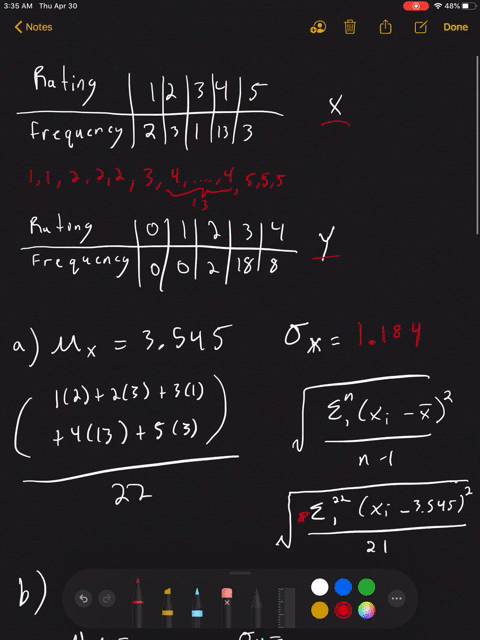 3:35 AM Thu Apr 30 48%
Notes Done
Rating 1 2 3 4 5
Frequency 2 3 1 13 3
X
1, 1, 2, 2, 2, 3, 4, ...., 4, 5, 5, 5
13
Rating 0 1 2 3 4
Frequency 0 0 2 18 8
Y
a) μx = 3.545 σx = 1.184
(1(2) + 2(3) + 3(1)
+ 4(13) + 5(3))
22
√ Σ₁ⁿ (xi - x̄)²
n - 1
√ Σ₁²² (xi - 3.545)²
21
b)